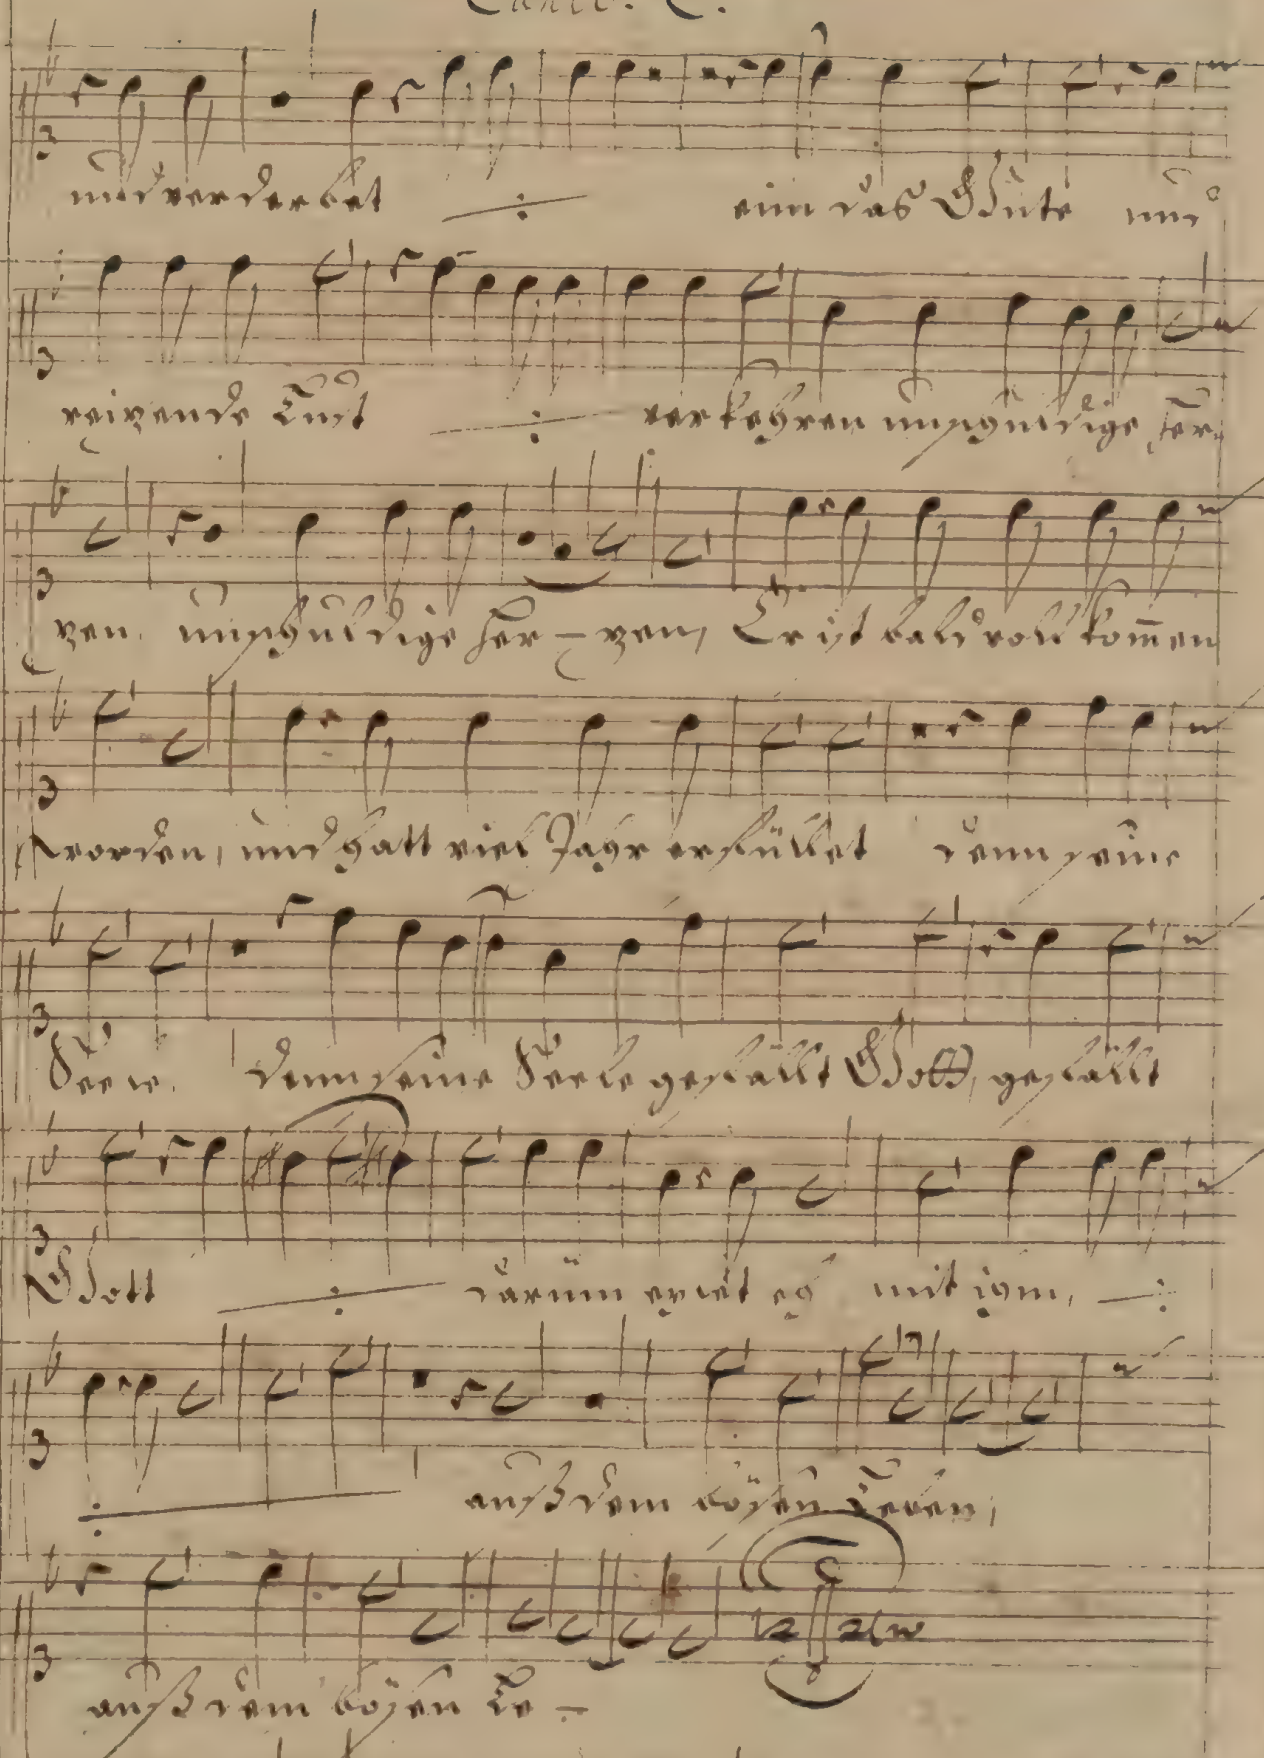 Canto. C.
und verderbet ÷ eim das Gute und
reizende Lust ÷ verkehren unschuldige Her-
zen, unschuldige Her-zen, Er ist bald vollkom̄en
worden, und hatt viel Jahr erfüllet denn seine
Seele, denn seine Seele gefällt Gott, gefällt
Gott ÷ darüm eylet er mit ihm, ÷
÷ auß dem bösen Leben,
auß dem bösen Le-